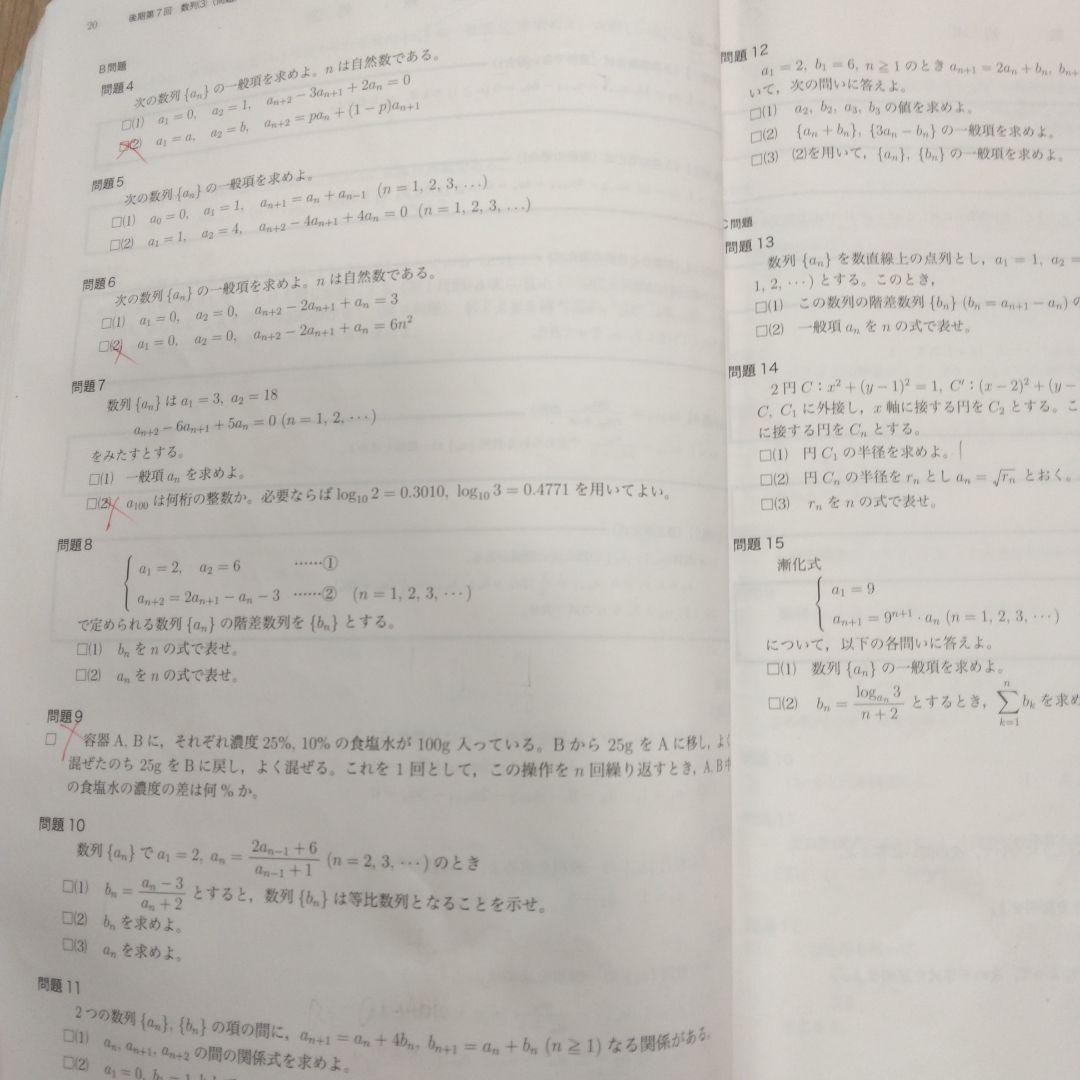 20 後期第7回 数列③
B問題
問題4
次の数列 {aₙ} の一般項を求めよ。n は自然数である。
□(1) a₁ = 0, a₂ = 1, aₙ₊₂ − 3aₙ₊₁ + 2aₙ = 0
□(2) a₁ = a, a₂ = b, aₙ₊₂ = paₙ + (1 − p)aₙ₊₁
問題5
次の数列 {aₙ} の一般項を求めよ。
□(1) a₀ = 0, a₁ = 1, aₙ₊₁ = aₙ + aₙ₋₁ (n = 1, 2, 3, …)
□(2) a₁ = 1, a₂ = 4, aₙ₊₂ − 4aₙ₊₁ + 4aₙ = 0 (n = 1, 2, 3, …)
問題6
次の数列 {aₙ} の一般項を求めよ。n は自然数である。
□(1) a₁ = 0, a₂ = 0, aₙ₊₂ − 2aₙ₊₁ + aₙ = 3
□(2) a₁ = 0, a₂ = 0, aₙ₊₂ − 2aₙ₊₁ + aₙ = 6n²
問題7
数列 {aₙ} は a₁ = 3, a₂ = 18
aₙ₊₂ − 6aₙ₊₁ + 5aₙ = 0 (n = 1, 2, ···)
をみたすとする。
□(1) 一般項 aₙ を求めよ。
□(2) a₁₀₀ は何桁の整数か。必要ならば log₁₀ 2 = 0.3010, log₁₀ 3 = 0.4771 を用いてよい。
問題8
a₁ = 2, a₂ = 6 ……①
aₙ₊₂ = 2aₙ₊₁ − aₙ − 3 ……② (n = 1, 2, 3, ···)
で定められる数列 {aₙ} の階差数列を {bₙ} とする。
□(1) bₙ を n の式で表せ。
□(2) aₙ を n の式で表せ。
問題9
□ 容器 A, B に，それぞれ濃度 25%, 10% の食塩水が 100g 入っている。B から 25g を A に移し，よく
混ぜたのち 25g を B に戻し，よく混ぜる。これを 1 回として，この操作を n 回繰り返すとき，A, B 中
の食塩水の濃度の差は何 % か。
問題10
数列 {aₙ} で a₁ = 2, aₙ = (2aₙ₋₁ + 6)/(aₙ₋₁ + 1) (n = 2, 3, ···) のとき
□(1) bₙ = (aₙ − 3)/(aₙ + 2) とすると，数列 {bₙ} は等比数列となることを示せ。
□(2) bₙ を求めよ。
□(3) aₙ を求めよ。
問題11
2 つの数列 {aₙ}, {bₙ} の項の間に，aₙ₊₁ = aₙ + 4bₙ, bₙ₊₁ = aₙ + bₙ (n ≧ 1) なる関係がある。
□(1) aₙ, aₙ₊₁, aₙ₊₂ の間の関係式を求めよ。
□(2) a₁ = 0,
問題12
a₁ = 2, b₁ = 6, n ≧ 1 のとき aₙ₊₁ = 2aₙ + bₙ,
いて，次の問いに答えよ。
□(1) a₂, b₂, a₃, b₃ の値を求めよ。
□(2) {aₙ + bₙ}, {3aₙ − bₙ} の一般項を求めよ。
□(3) (2)を用いて，{aₙ}, {bₙ} の一般項を求めよ。
C問題
問題13
数列 {aₙ} を数直線上の点列とし，a₁ = 1, a₂ =
1, 2, ···) とする。このとき，
□(1) この数列の階差数列 {bₙ} (bₙ = aₙ₊₁ − aₙ) の
□(2) 一般項 aₙ を n の式で表せ。
問題14
2 円 C : x² + (y − 1)² = 1, C′ : (x − 2)² + (y −
C, C₁ に外接し，x 軸に接する円を C₂ とする。こ
に接する円を Cₙ とする。
□(1) 円 C₁ の半径を求めよ。
□(2) 円 Cₙ の半径を rₙ とし aₙ = √rₙ とおく。
□(3) rₙ を n の式で表せ。
問題15
漸化式
a₁ = 9
aₙ₊₁ = 9ⁿ⁺¹ · aₙ (n = 1, 2, 3, ···)
について，以下の各問いに答えよ。
□(1) 数列 {aₙ} の一般項を求めよ。
□(2) bₙ = (log_{aₙ} 3)/(n + 2) とするとき，∑_{k=1}^{n} bₖ を求め